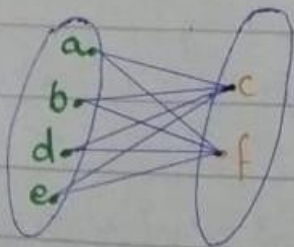 a
b
d
e
c
f